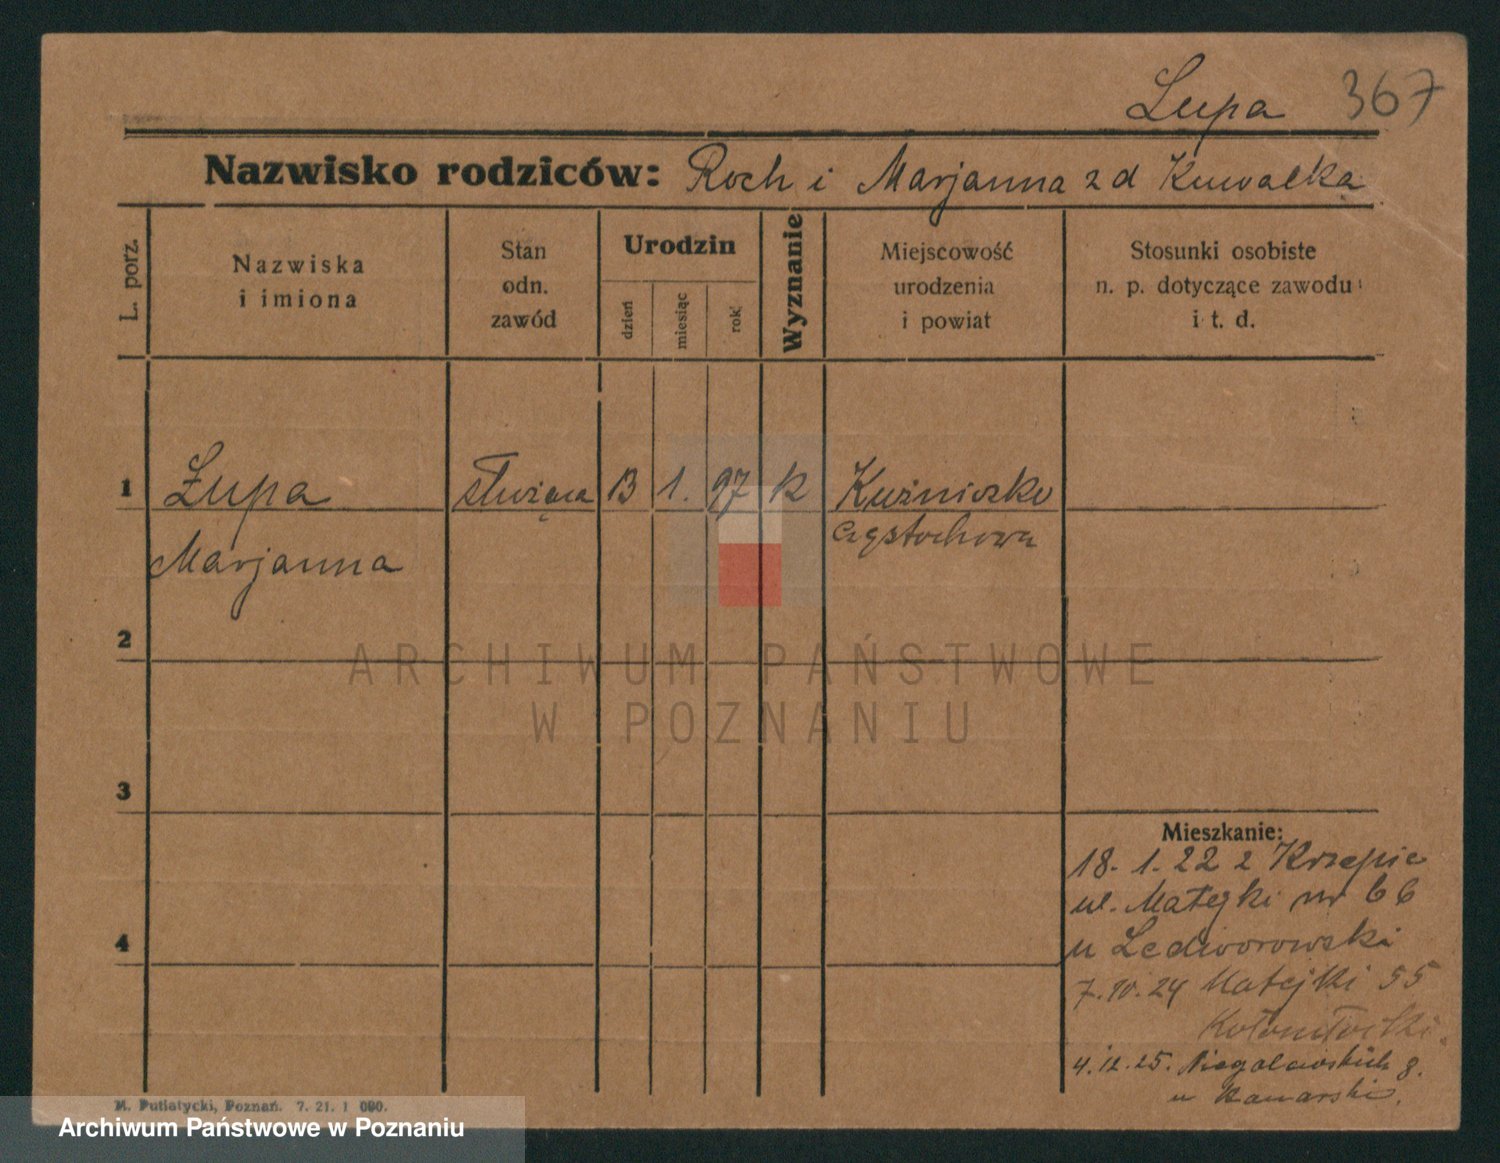 Łupa 367
Nazwisko rodziców: Roch i Marjanna z d Kuwałka
L. porz.
Nazwiska
i imiona
Stan
odn.
zawód
Urodzin
dzień
miesiąc
rok
Wyznanie
Miejscowość
urodzenia
i powiat
Stosunki osobiste
n. p. dotyczące zawodu
i t. d.
1 Łupa służąca 13 1. 97 k Kuźniczko
Marjanna Częstochowa
2
3
4
Mieszkanie:
18. 1. 22 z Krzepic
ul. Matejki nr 66
u Ledworowski
7. IV. 24 Matejki 55
4. 12. 25. Niegolewskich 8.
u Kanarski.
M. Putiatycki, Poznań. 7. 21. 1 000.
ARCHIWUM PAŃSTWOWE
W POZNANIU
Archiwum Państwowe w Poznaniu